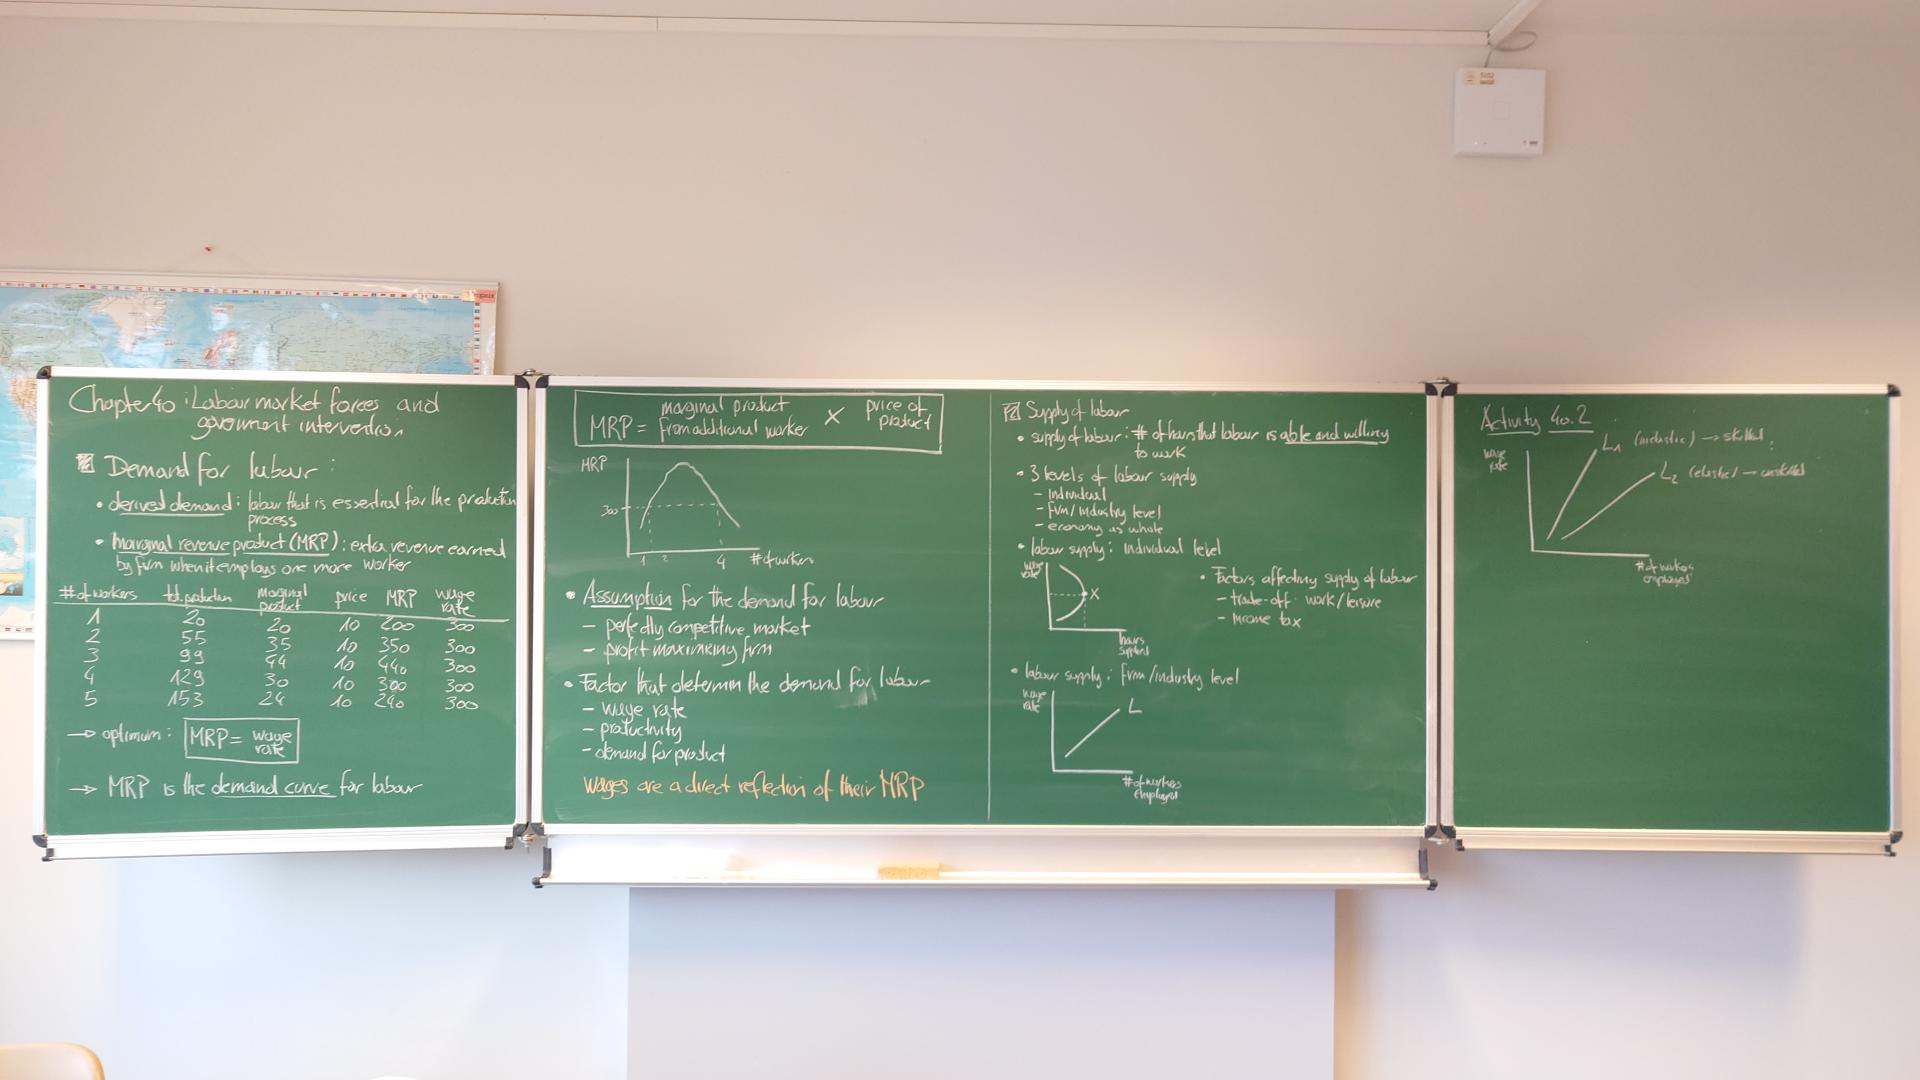 Chapter 40 : Labour market forces and
government intervention
Demand for labour :
• derived demand : labour that is essential for the production
process
• marginal revenue product (MRP) : extra revenue earned
by firm when it employs one more worker
# of workers tot. production marginal product price MRP wage rate
1 20 20 10 200 300
2 55 35 10 350 300
3 99 44 10 440 300
4 129 30 10 300 300
5 153 24 10 240 300
→ optimum : MRP = wage rate
→ MRP is the demand curve for labour
MRP = marginal product from additional worker × price of product
MRP
300
1 2 4 # of workers
• Assumption for the demand for labour
- perfectly competitive market
- profit maximising firm
• Factor that determin the demand for labour
- wage rate
- productivity
- demand for product
wages are a direct reflection of their MRP
Supply of labour
• supply of labour : # of hours that labour is able and willing
to work
• 3 levels of labour supply
- individual
- firm/industry level
- economy as whole
• labour supply : individual level
wage rate
X
hours supplied
• Factors affecting supply of labour
- trade-off work/leisure
- income tax
• labour supply : firm/industry level
wage rate
L
# of workers
employed
Activity 40.2
wage rate
L1 (inelastic) → skilled
L2 (elastic) → unskilled
# of workers
employed